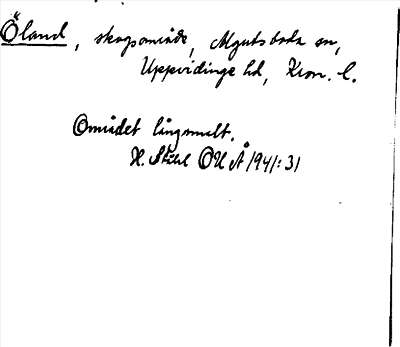 Öland, skogsområde, Algutsboda sn,
Uppvidinge hd, Kron. l.
Området långsmalt.
H. Ståhl OUÅ 1941:31